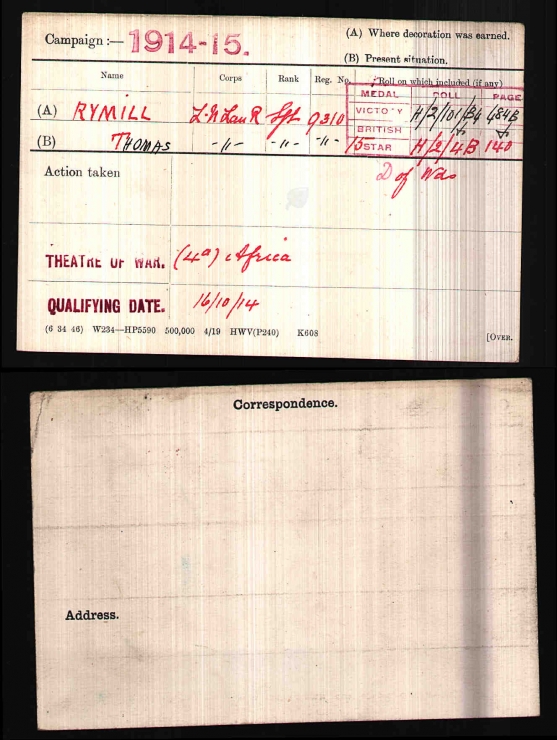 Campaign :— 1914-15.
(A) Where decoration was earned.
(B) Present situation.
Name Corps Rank Reg. No. Roll on which included (if any)
MEDAL ROLL PAGE
(A) RYMILL L. N Lan R Sgt 9310 VICTORY H/2/101/B4 484B
BRITISH
(B) THOMAS -"- -"- -"- 15 STAR H/2/4B 140
Action taken D of Wds
THEATRE OF WAR. (4a) Africa
QUALIFYING DATE. 16/10/14
(6 34 46) W234—HP5590 500,000 4/19 HWV(P240) K608 [OVER.
Correspondence.
Address.